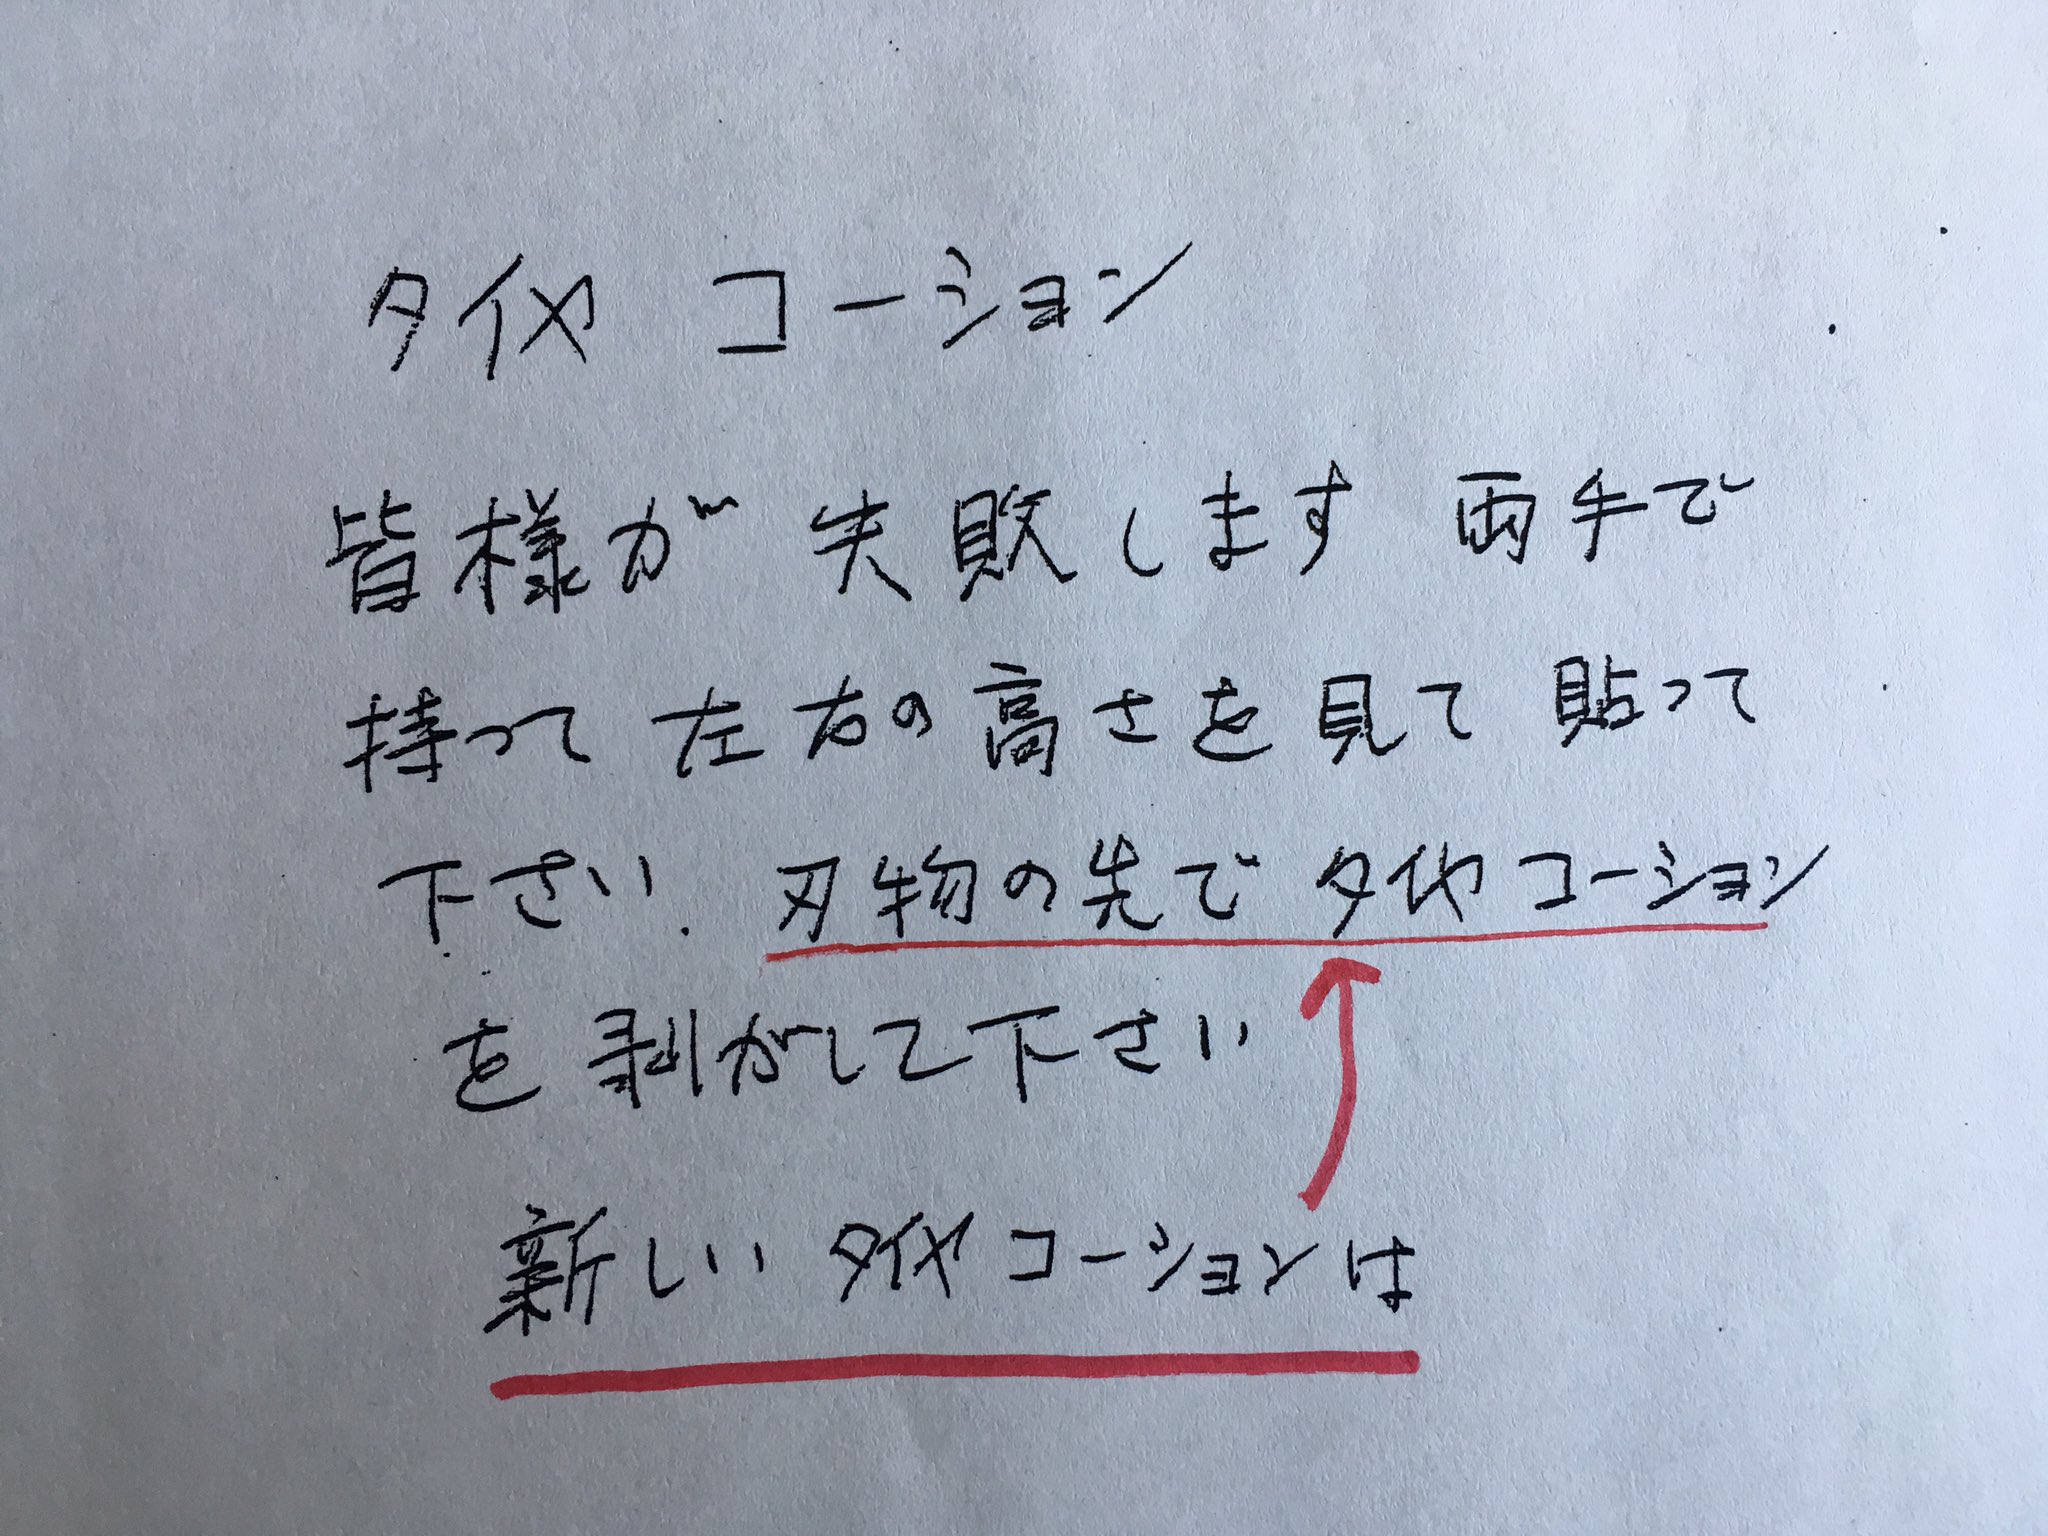 タイヤ コーション
皆様が 失敗します 両手で
持って 左右の高さを 見て 貼って
下さい. 刃物の先で タイヤコーション
を 剥がして下さい
新しい タイヤコーションは